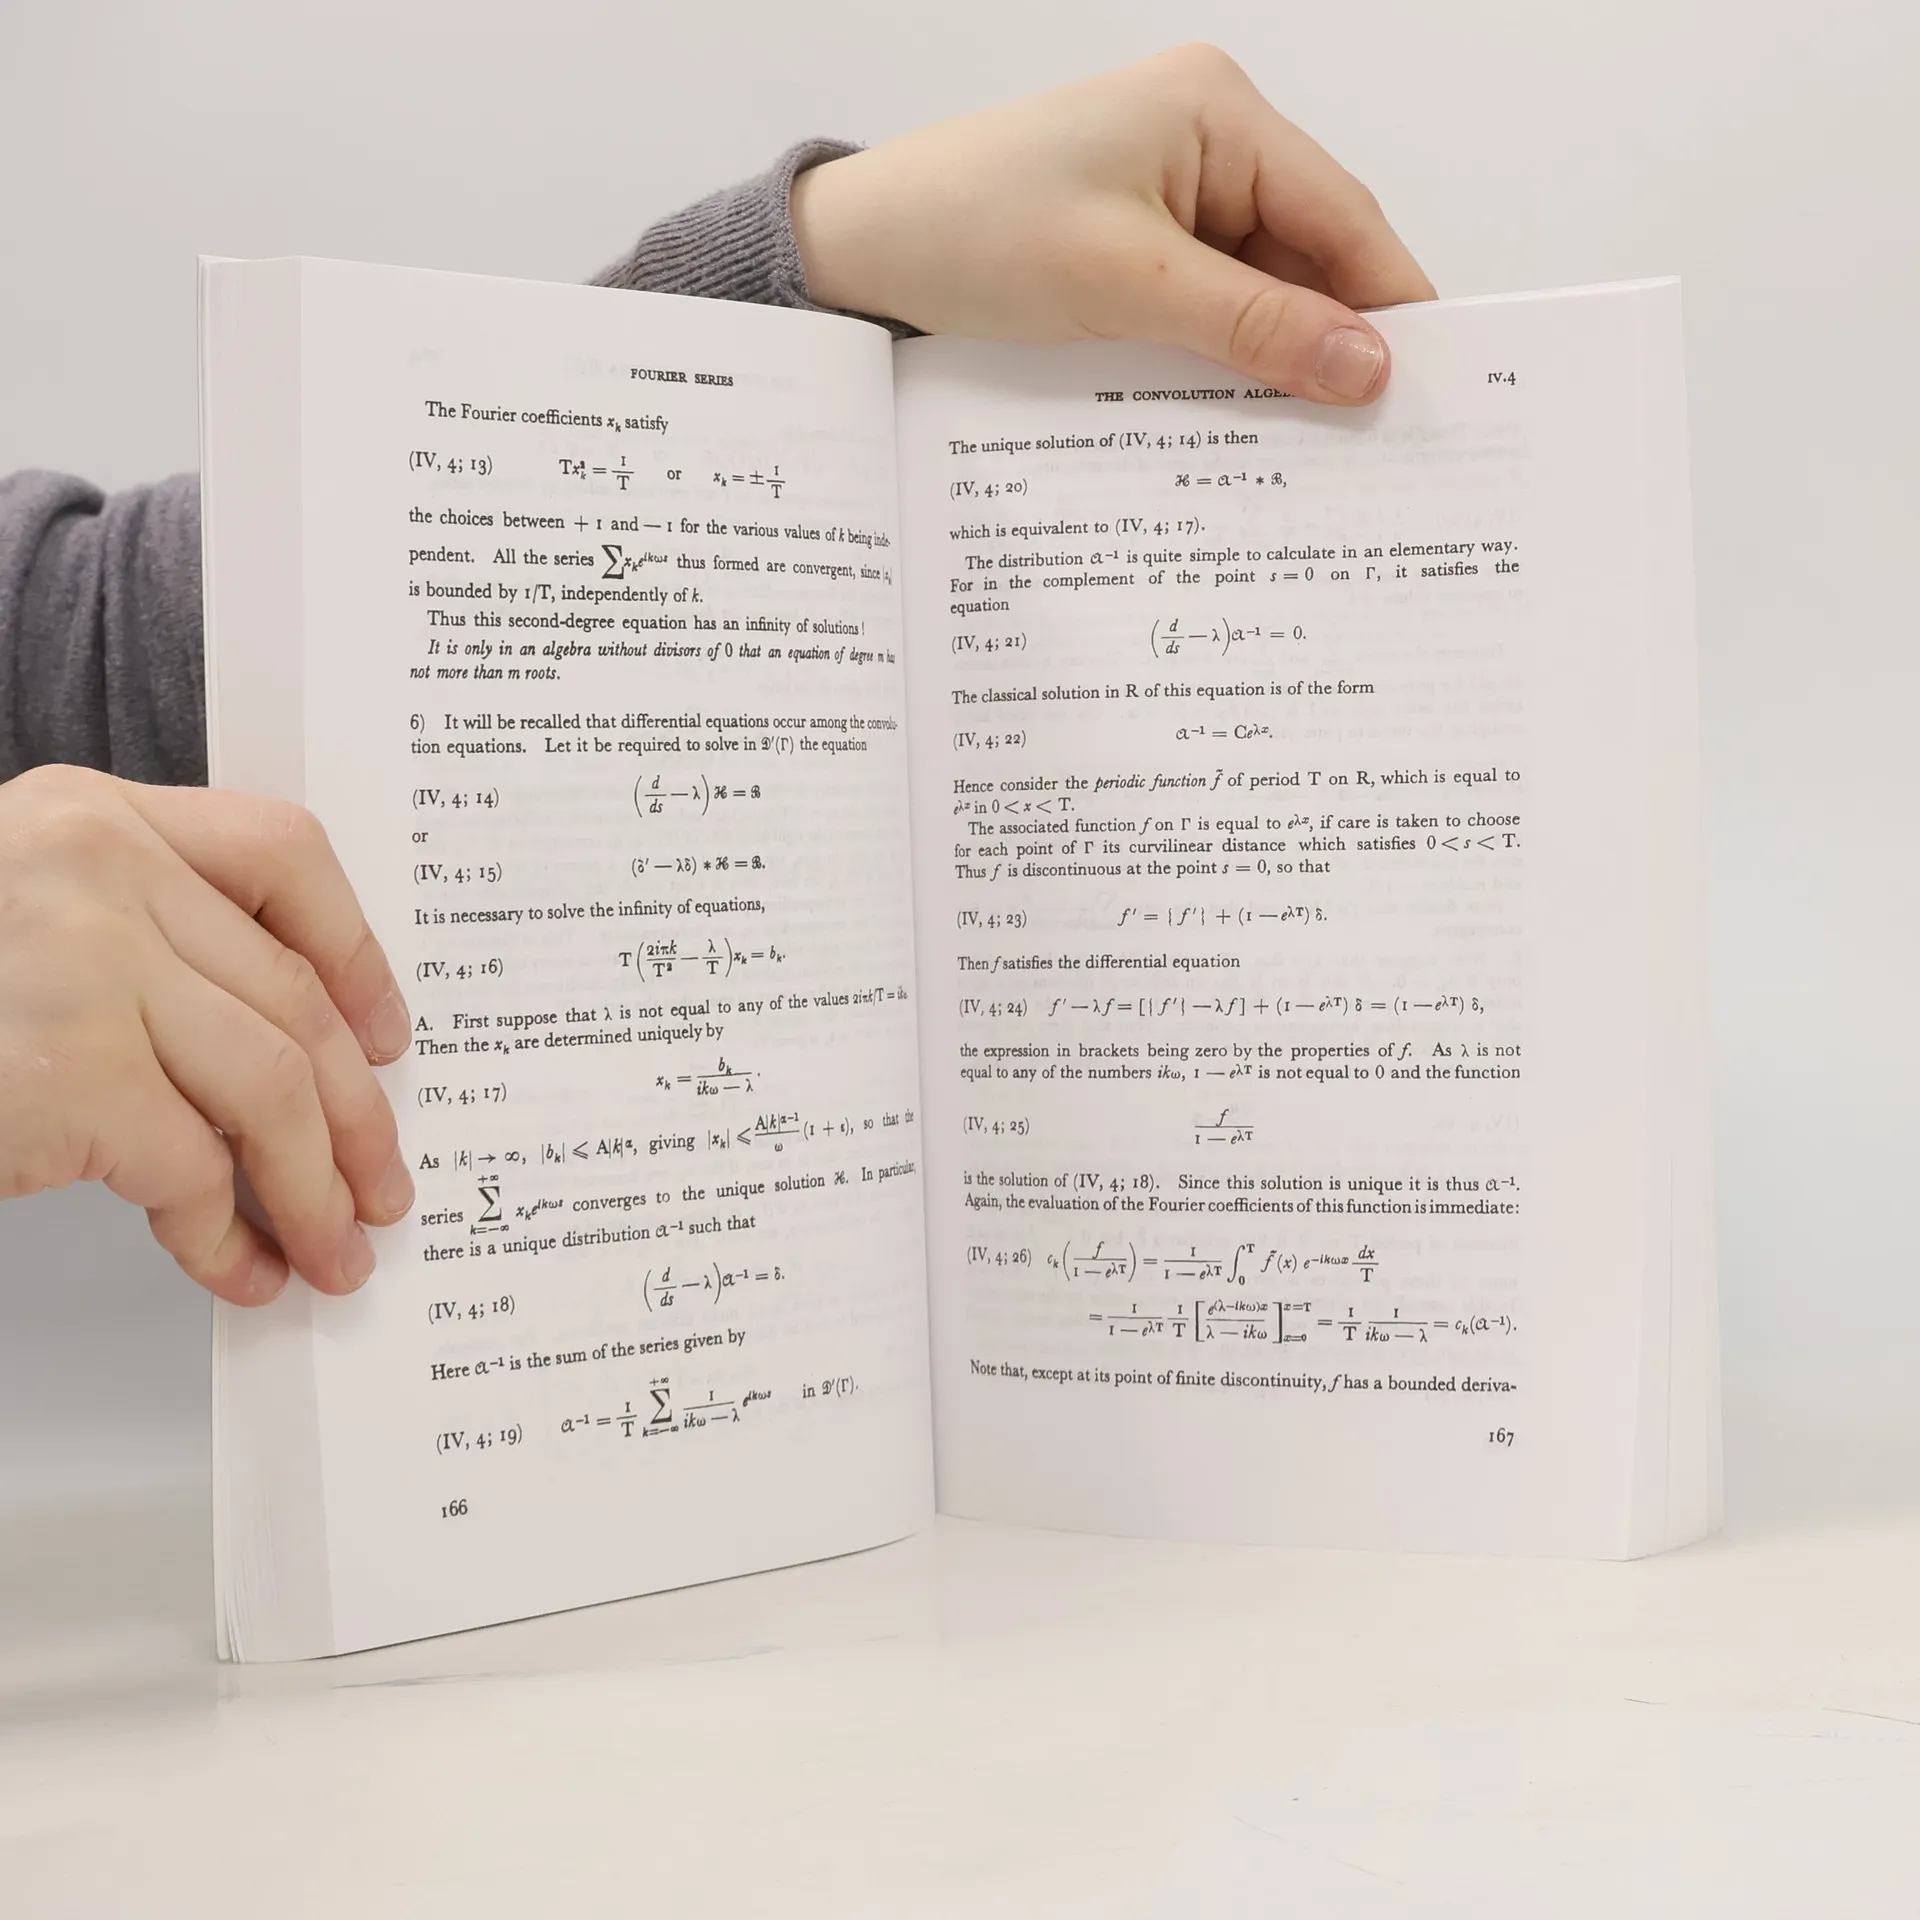 FOURIER SERIES
The Fourier coefficients xₖ satisfy
(IV, 4; 13) Txₖ² = 1/T or xₖ = ± 1/T
the choices between + 1 and — 1 for the various values of k being inde-
pendent. All the series ∑xₖe^{ikωs} thus formed are convergent, since |xₖ|
is bounded by 1/T, independently of k.
Thus this second-degree equation has an infinity of solutions!
It is only in an algebra without divisors of 0 that an equation of degree m has
not more than m roots.
6) It will be recalled that differential equations occur among the convolu-
tion equations. Let it be required to solve in 𝒟′(Γ) the equation
(IV, 4; 14) (d/ds — λ) ℋ = ℬ
or
(IV, 4; 15) (δ′ — λδ) * ℋ = ℬ.
It is necessary to solve the infinity of equations,
(IV, 4; 16) T (2iπk/T² — λ/T) xₖ = bₖ.
A. First suppose that λ is not equal to any of the values 2iπk/T = ikω
Then the xₖ are determined uniquely by
(IV, 4; 17) xₖ = bₖ/(ikω — λ).
As |k| → ∞, |bₖ| ⩽ A|k|^α, giving |xₖ| ⩽ A|k|^{α–1}/ω (1 + ε), so that the
series ∑_{k=—∞}^{+∞} xₖe^{ikωs} converges to the unique solution ℋ. In particular,
there is a unique distribution 𝒜⁻¹ such that
(IV, 4; 18) (d/ds — λ) 𝒜⁻¹ = δ.
Here 𝒜⁻¹ is the sum of the series given by
(IV, 4; 19) 𝒜⁻¹ = 1/T ∑_{k=—∞}^{+∞} 1/(ikω — λ) e^{ikωs} in 𝒟′(Γ).
166
THE CONVOLUTION IV.4
The unique solution of (IV, 4; 14) is then
(IV, 4; 20) ℋ = 𝒜⁻¹ * ℬ,
which is equivalent to (IV, 4; 17).
The distribution 𝒜⁻¹ is quite simple to calculate in an elementary way.
For in the complement of the point s = 0 on Γ, it satisfies the
equation
(IV, 4; 21) (d/ds — λ) 𝒜⁻¹ = 0.
The classical solution in R of this equation is of the form
(IV, 4; 22) 𝒜⁻¹ = Ce^{λx}.
Hence consider the periodic function f̃ of period T on R, which is equal to
e^{λx} in 0 < x < T.
The associated function f on Γ is equal to e^{λx}, if care is taken to choose
for each point of Γ its curvilinear distance which satisfies 0 < s < T.
Thus f is discontinuous at the point s = 0, so that
(IV, 4; 23) f′ = {f′} + (1 — e^{λT}) δ.
Then f satisfies the differential equation
(IV, 4; 24) f′ — λf = [{f′} — λf] + (1 — e^{λT}) δ = (1 — e^{λT}) δ,
the expression in brackets being zero by the properties of f. As λ is not
equal to any of the numbers ikω, 1 — e^{λT} is not equal to 0 and the function
(IV, 4; 25) f/(1 — e^{λT})
is the solution of (IV, 4; 18). Since this solution is unique it is thus 𝒜⁻¹.
Again, the evaluation of the Fourier coefficients of this function is immediate:
(IV, 4; 26) cₖ(f/(1 — e^{λT})) = 1/(1 — e^{λT}) ∫₀^T f̃(x) e^{–ikωx} dx/T
= 1/(1 — e^{λT}) 1/T [e^{(λ–ikω)x}/(λ — ikω)]_{x=0}^{x=T} = 1/T 1/(ikω — λ) = cₖ(𝒜⁻¹).
Note that, except at its point of finite discontinuity, f has a bounded deriva-
167